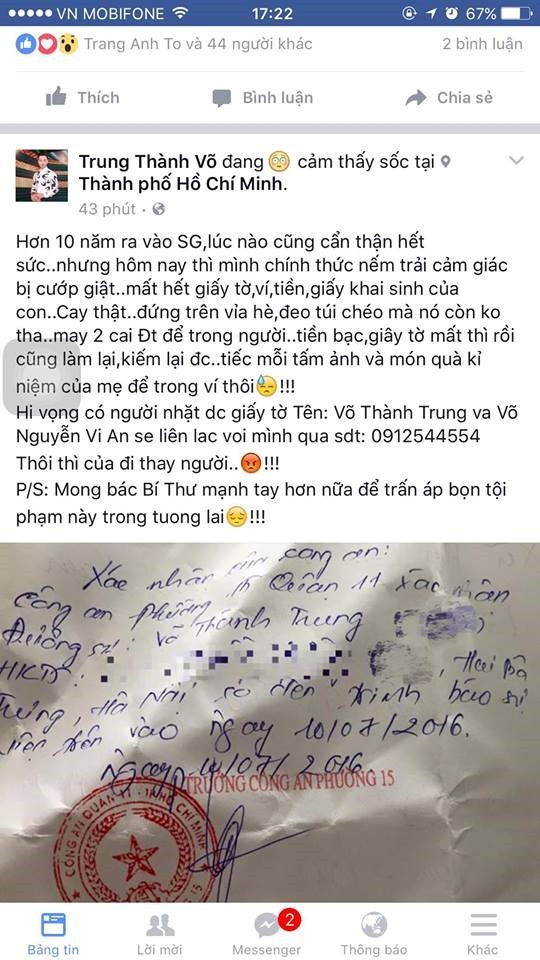 VN MOBIFONE 17:22 67%
Trang Anh To và 44 người khác 2 bình luận
Thích Bình luận Chia sẻ
Trung Thành Võ đang 😳 cảm thấy sốc tại
Thành phố Hồ Chí Minh.
43 phút ·
Hơn 10 năm ra vào SG,lúc nào cũng cẩn thận hết
sức..nhưng hôm nay thì mình chính thức nếm trải cảm giác
bị cướp giật..mất hết giấy tờ,ví,tiền,giấy khai sinh của
con..Cay thật..đứng trên vỉa hè,đeo túi chéo mà nó còn ko
tha..may 2 cai Đt để trong người..tiền bạc,giây tờ mất thì rồi
cũng làm lại,kiếm lại đc..tiếc mỗi tấm ảnh và món quà kỉ
niệm của mẹ để trong ví thôi😓!!!
Hi vọng có người nhặt dc giấy tờ Tên: Võ Thành Trung va Võ
Nguyễn Vi An se liên lac voi mình qua sdt: 0912544554
Thôi thì của đi thay người..😡!!!
P/S: Mong bác Bí Thư mạnh tay hơn nữa để trấn áp bọn tội
phạm này trong tuong lai😔!!!
Xác nhận của công an:
Công an Phường 15 Quận 11 xác nhận
Đương sự: Võ Thành Trung
HKTT: , Hai Bà
Trưng, Hà Nội có đến trình báo sự
việc trên vào ngày 10/07/2016.
Ngày 14/07/2016
TRƯỞNG CÔNG AN PHƯỜNG 15
CÔNG AN QUẬN 11 - TP. HỒ CHÍ MINH
2
Bảng tin Lời mời Messenger Thông báo Khác